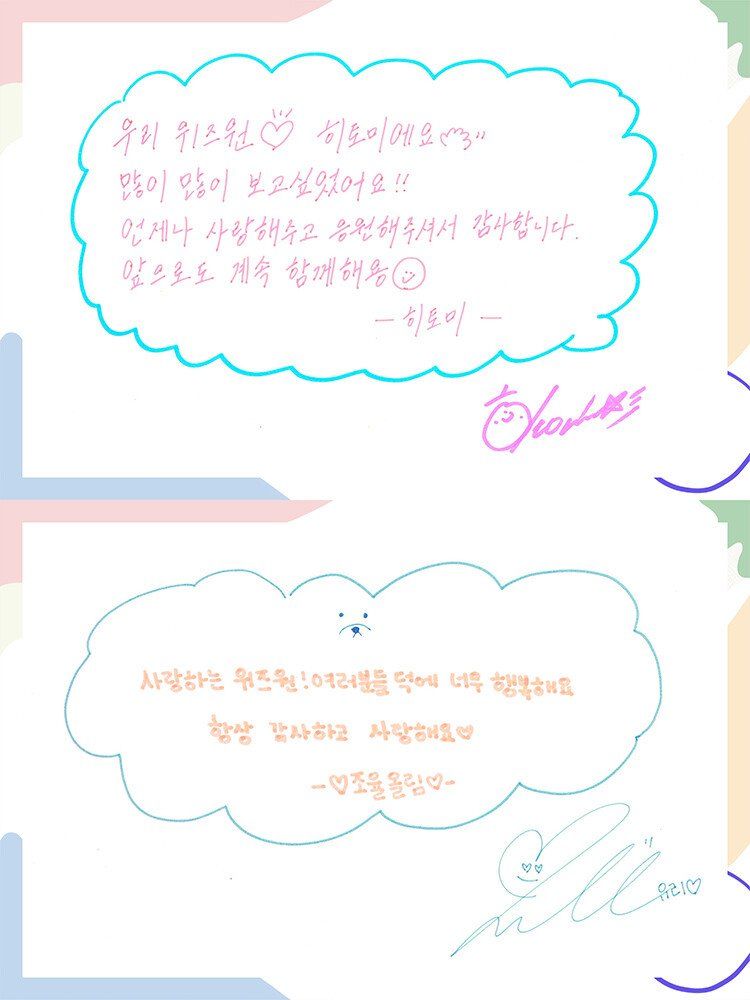 우리 위즈원♡ 히토미에요
많이 많이 보고싶었어요!!
언제나 사랑해주고 응원해주셔서 감사합니다.
앞으로도 계속 함께해용
- 히토미 -
사랑하는 위즈원! 여러분들 덕에 너무 행복해요
항상 감사하고 사랑해요♡
-♡조율올림♡-
유리♡